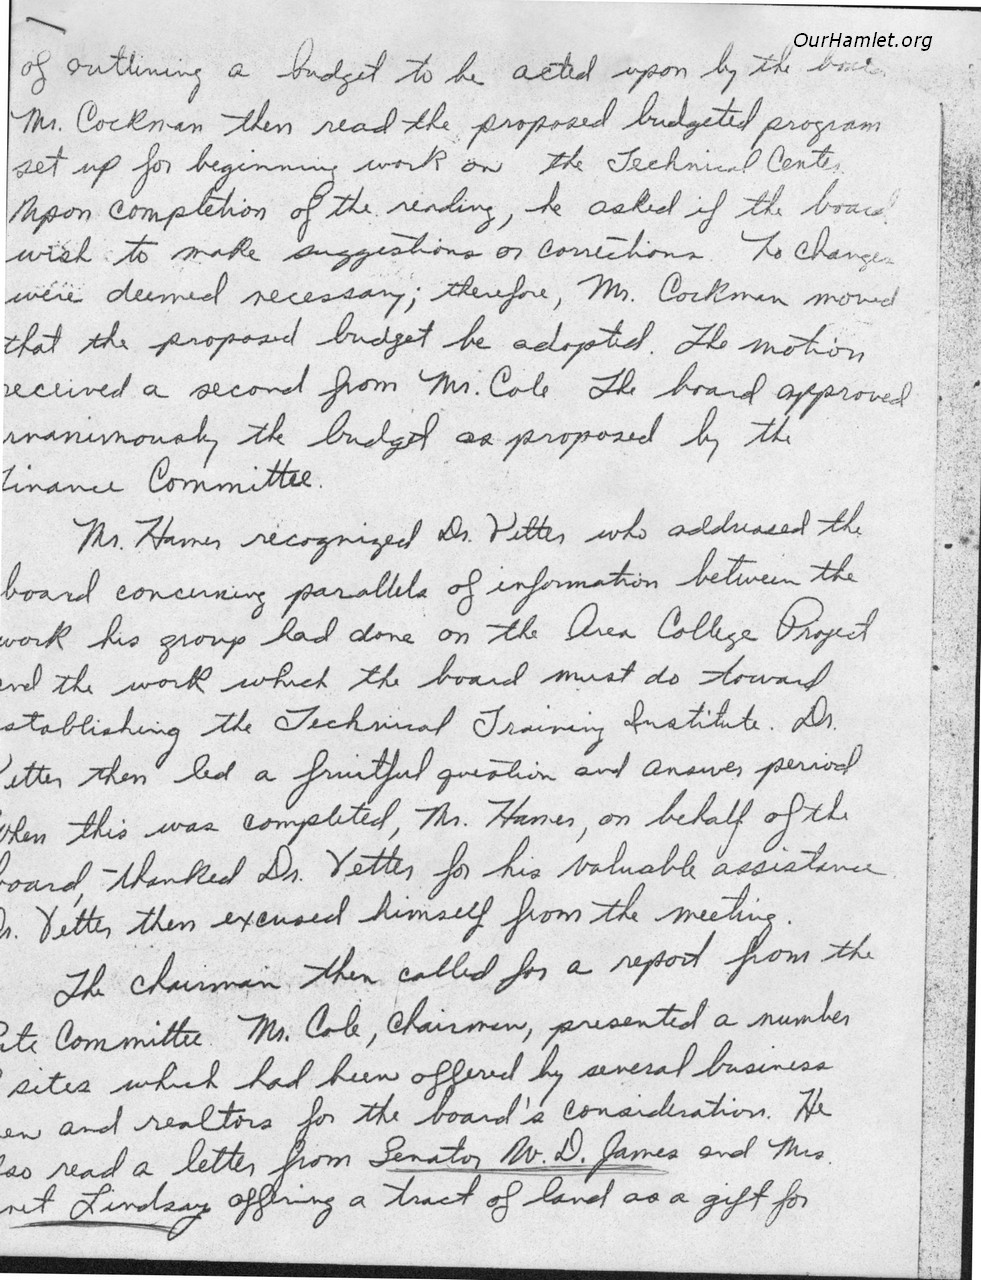 OurHamlet.org
of outlining a budget to be acted upon by the board
Mr. Cockman then read the proposed budgeted program
set up for beginning work on the Technical Center
Upon completion of the reading, he asked if the board
wish to make suggestions or corrections. No changes
were deemed necessary; therefore, Mr. Cockman moved
that the proposed budget be adopted. The motion
received a second from Mr. Cole The board approved
unanimously the budget as proposed by the
Finance Committee.
Mr. Hames recognized Dr. Vetter who addressed the
board concerning parallels of information between the
work his group had done on the Area College Project
and the work which the board must do toward
establishing the Technical Training Institute. Dr.
Vetter then led a fruitful question and answer period
When this was completed, Mr. Hames, on behalf of the
board, thanked Dr. Vetter for his valuable assistance
Dr. Vetter then excused himself from the meeting.
The chairman then called for a report from the
Site Committee. Mr. Cole, Chairman, presented a number
sites which had been offered by several business
en and realtors for the board's consideration. He
lso read a letter from Senator W. D. James and Mrs.
Lindsay offering a tract of land as a gift for